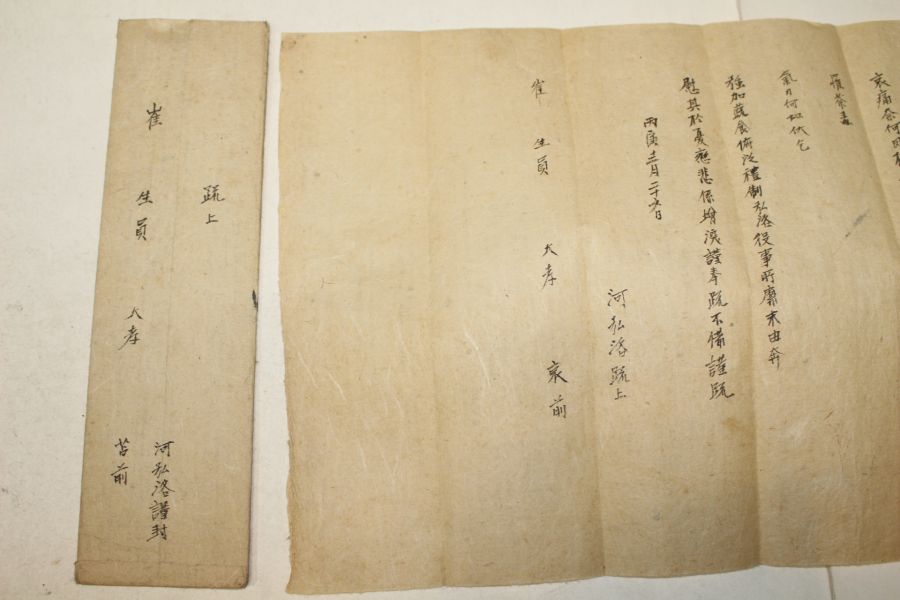 哀痛奈何
罹荼毒
氣力何似伏乞
強加蔬食俯從禮制弘洛役事所縻末由奔
慰其於憂戀悲係增深謹奉疏不備謹疏
丙寅十二月二十六日
河弘洛疏上
崔生員大孝哀前
疏上
崔生員大孝苫前
河弘洛謹封